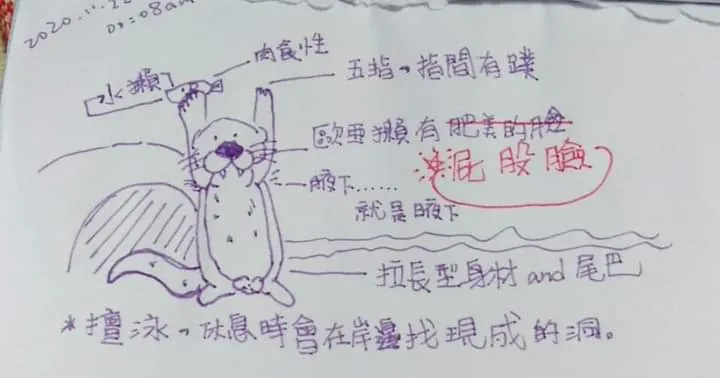 2020.11.22
00:08am
肉食性
水獺
五指、指間有蹼
歐亞獺有肥美的臉
屁股臉
腋下......
就是腋下
拉長型身材and尾巴
*擅泳、休息時會在岸邊找現成的洞。